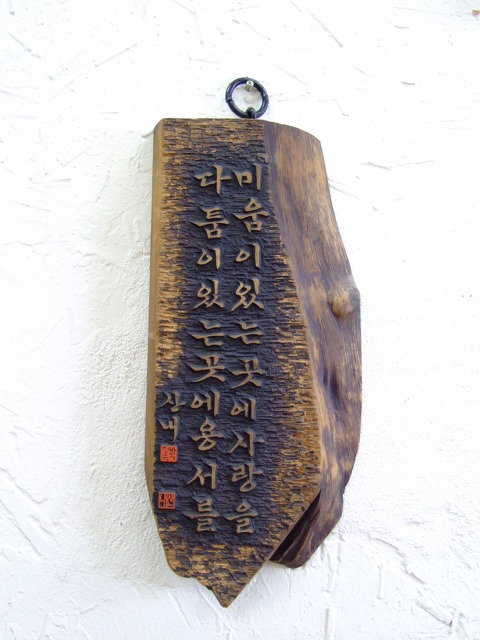 미움이있는곳에사랑을
다툼이있는곳에용서를
산내